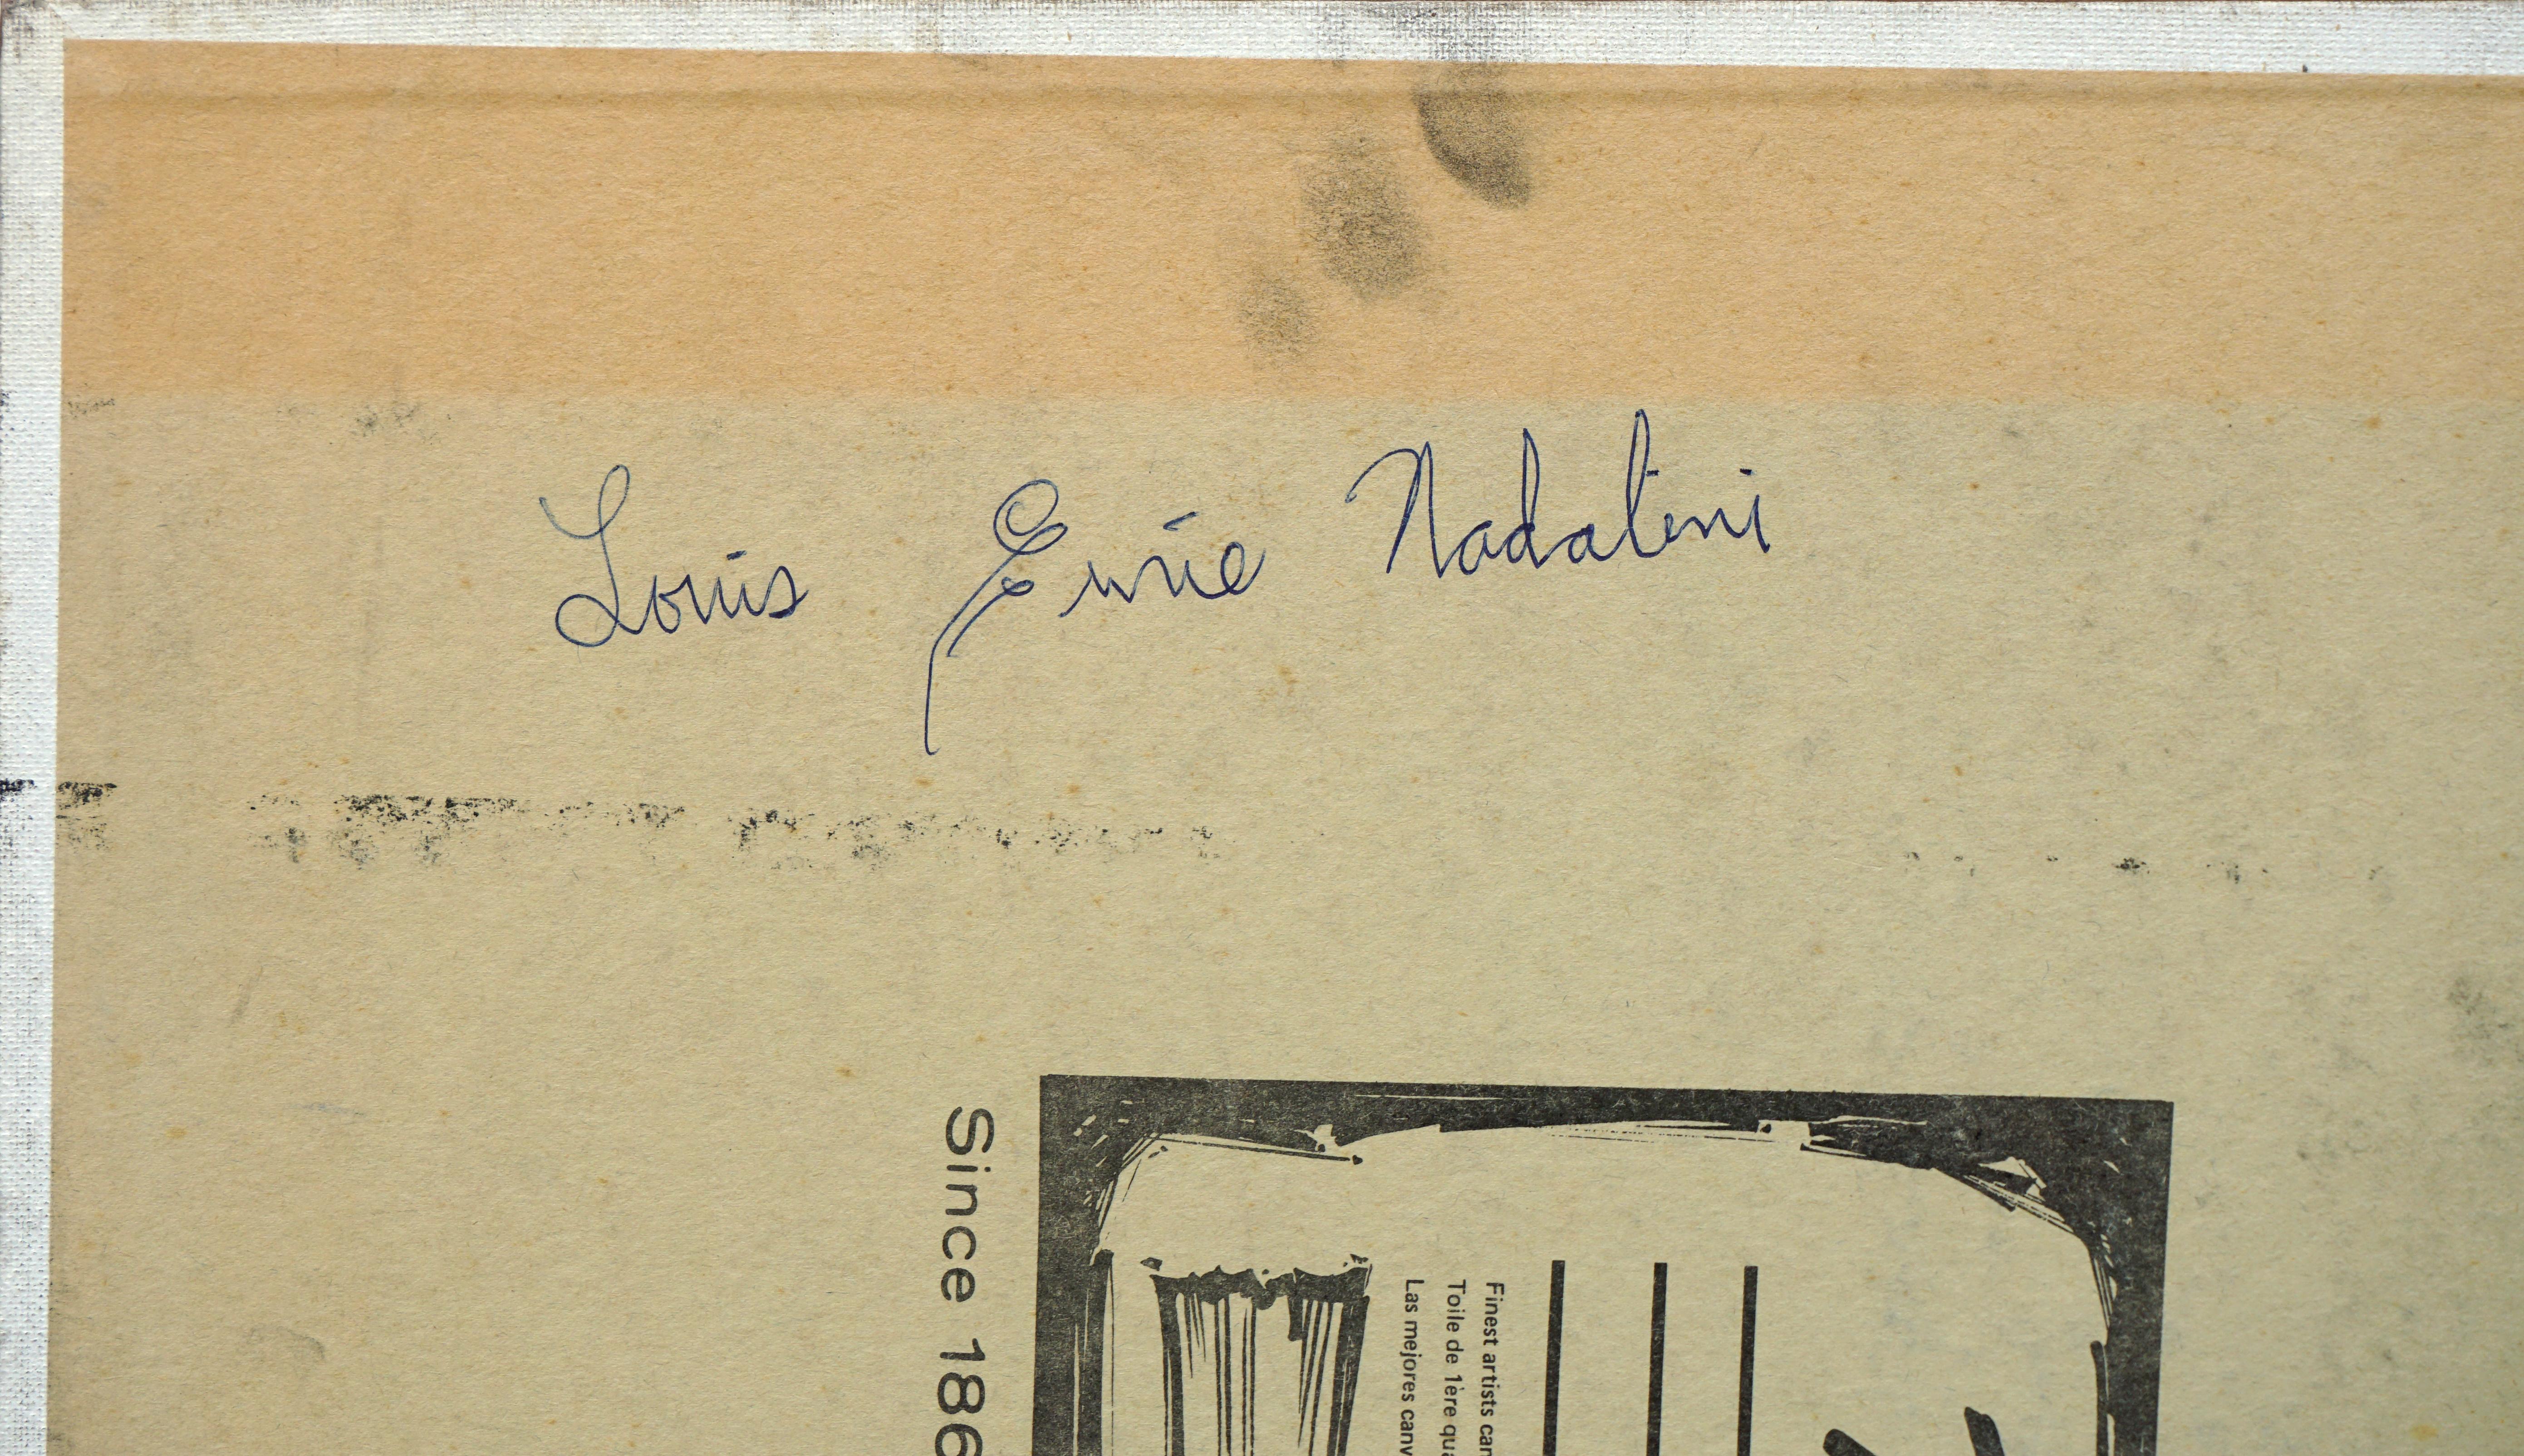 Louis Ernie Nadalini
Since 186
Finest artists can
Toile de 1ère qua
Las mejores canv